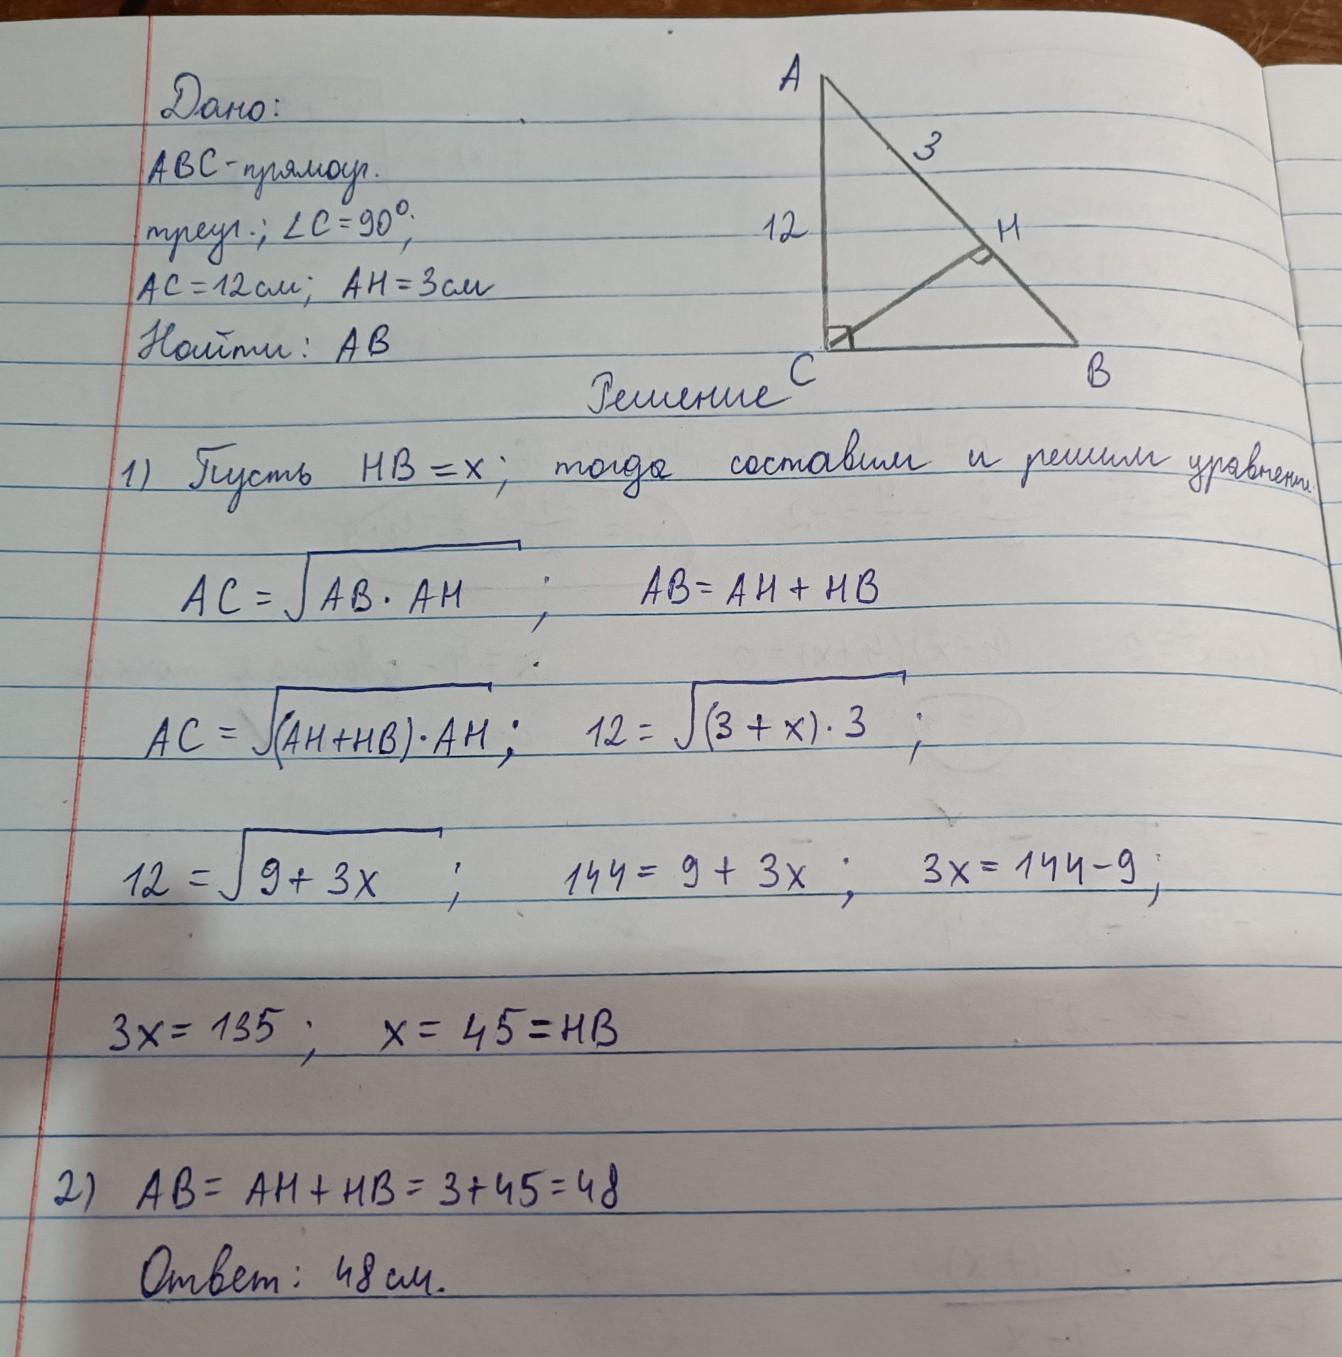 Дано:
ABC-прямоуг.
треуг.; ∠C=90°;
AC=12см; AH=3см
Найти: AB
A
3
12
H
C
B
Решение
1) Пусть HB=x; тогда составим и решим уравнени
AC=√(AB·AH); AB=AH+HB
AC=√((AH+HB)·AH); 12=√((3+x)·3);
12=√(9+3x); 144=9+3x; 3x=144-9;
3x=135; x=45=HB
2) AB=AH+HB=3+45=48
Ответ: 48см.